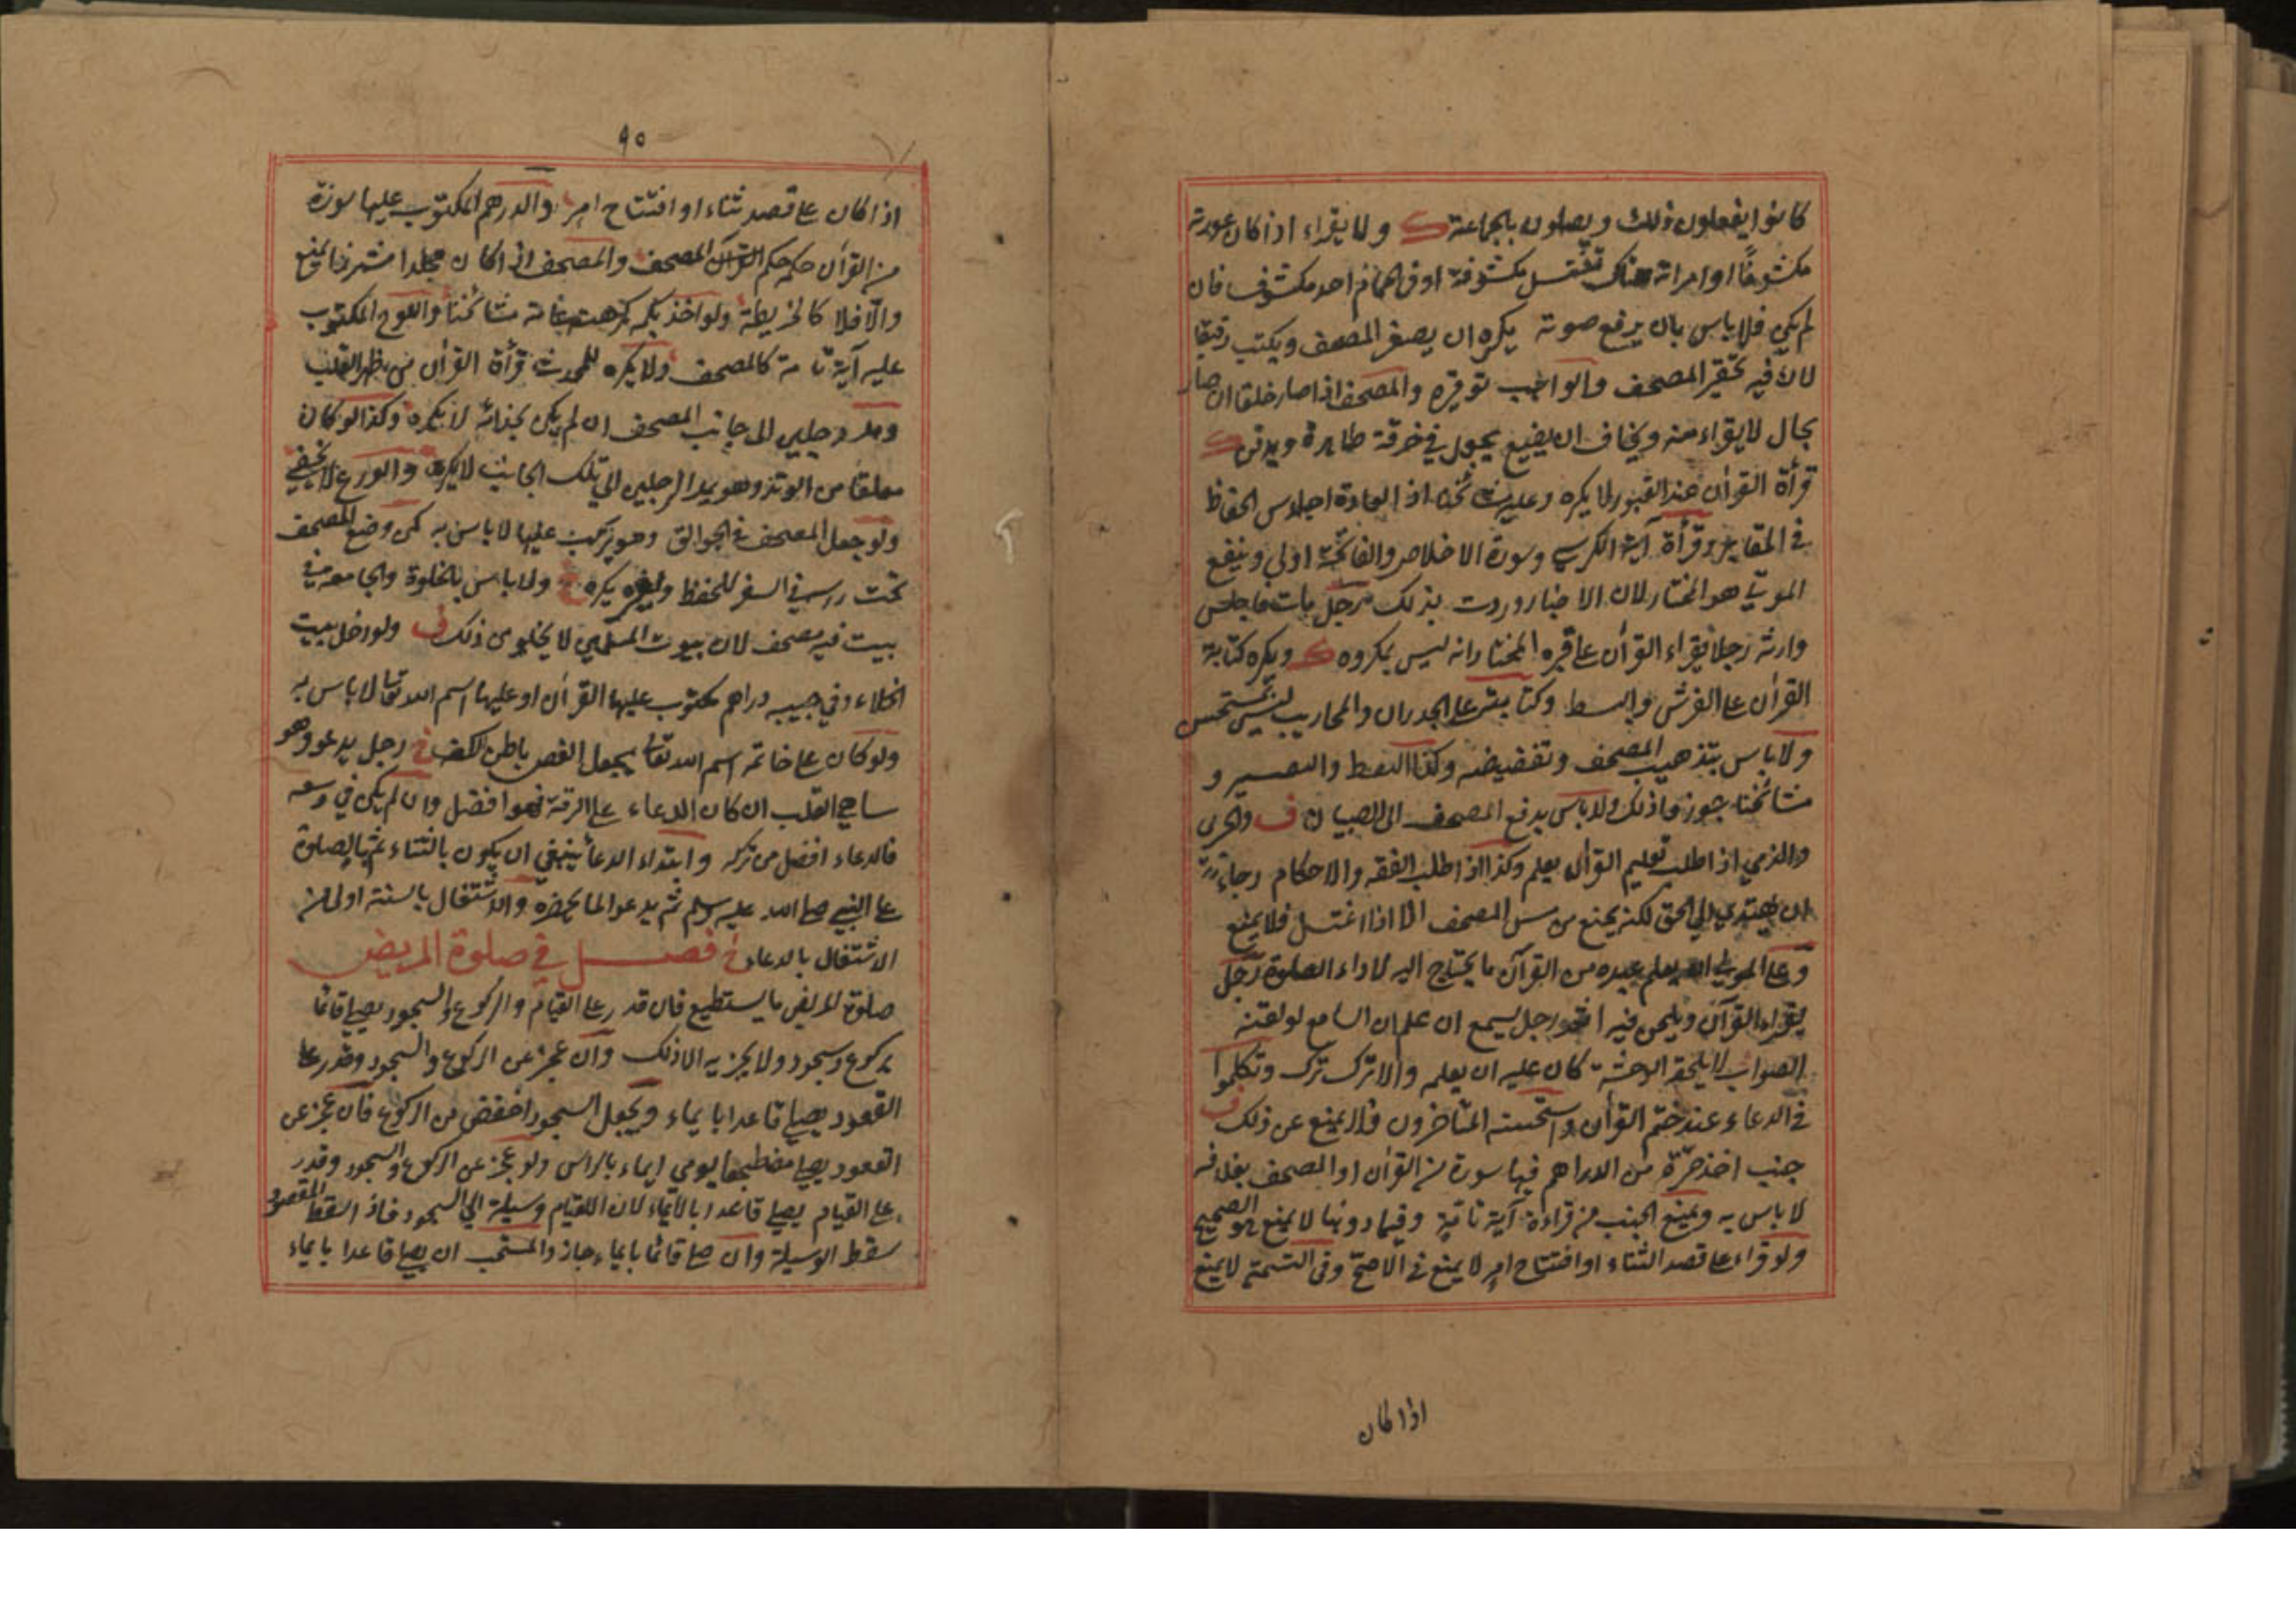 كانوا يفعلون ذلك ويصلون بالجماعة ك ولا يقراء اذا كان عورته
مكشوفًا او امراته هناك تغتسل مكشوفة او في الحمام احد مكشوف فان
لم يكن فلا باس بان يرفع صوته يكره ان يصغر المصحف ويكتب رقيقا
لان فيه تحقير المصحف والواجب توقيره والمصحف اذا صار خلقا ان صار
بحال لا يقراء منه ويخاف ان يضيع يجعل في خرقة طاهرة ويدفن ك
قرأة القرأن عند القبور لا يكره وعليه اذ العادة اجلاس الحفاظ
في المقابر وقرأة آية الكرسي وسورة الاخلاص والفاتحة اولي وينفع
الموتي هو المختار لان الاخبار وردت بذلك رجل مات فاجلس
وارثه رجلا يقراء القرأن على قبره المختار انه ليس بمكروه ك ويكره كتابة
القرأن على الفرش والبسط وكتابته على الجدران والمحاريب ليس بمستحسن
ولا باس بتذهيب المصحف وتفضيضه وكذا النقط والتعشير و
مشائخنا جوزوا ذلك ولا باس بدفع المصحف الى الصبيان ف والحربي
والذمي اذا طلب تعليم القرأن يعلم وكذا اذا طلب الفقه والاحكام رجاء
ان يهتدي الي الحق لكنه يمنع من مس المصحف الا اذا اغتسل فلا يمنع
وعلى المولي ان يعلم عبده من القرآن ما يحتاج اليه لاداء الصلوة رجل
يقراء القرآن ويلحن فيه رجل يسمع ان علم ان السامع لو لقنه
الصواب لا يلحقه الوحشة كان عليه ان يعلم والا ترك وتكلموا
في الدعاء عند ختم القرأن واستحسنه المتاخرون ولا يمنع عن ذلك ف
جنب اخذ صرّة من الدراهم فيها سورة من القرأن او المصحف بغلافه
لا باس به ويمنع الجنب من قراءة آية تامة وفيما دونها لا يمنع هو الصحيح
ولو قراء على قصد الثناء او افتتاح امر لا يمنع في الاصح وفى التسمية لا يمنع
اذا كان
٩٠
اذا كان على قصد ثناء او افتتاح امر والدرهم المكتوب عليها سورة
من القرأن حكمه حكم المصحف والمصحف اذا كان مجلدا مشرزا يمنع
والّا فلا كالخريطة ولو اخذ بكمه كرهت عامة مشائخنا واللوح المكتوب
عليه آية تامة كالمصحف ولا يكره للمحدث قرأة القرأن من ظهر القلب
ومد رجليه الى جانب المصحف ان لم يكن بحذائه لا يكره وكذا لو كان
معلقا من الوتد وهو يمد الرجلين الي تلك الجانب لا يكره والورع لا يخفي
ولو جعل المصحف في الجوالق وهو يركب عليها لا باس به كمن وضع المصحف
تحت راسه في السفر للحفظ ولغيره يكره ولا باس بالخلوة والجامعة في
بيت فيه مصحف لان بيوت المسلمين لا يخلو من ذلك ف ولو دخل بيت
الخلاء وفي جيبه دراهم مكتوب عليها القرأن او عليها اسم الله تعا لا باس به
ولو كان على خاتمه اسم الله تعا يجعل الفص باطن الكف خ رجل يدعو وهو
ساهي القلب ان كان الدعاء على الرقة فهو افضل وان لم يكن في وسعه
فالدعاء افضل من تركه وابتداء الدعأ ينبغي ان يكون بالثناء ثم بالصلوة
على النبي صلى الله عليه وسلم ثم يدعو لما يحضره والاشتغال بالسنة اولى من
الاشتغال بالدعاء خ فصل في صلوة المريض
صلوة المريض ما يستطيع فان قدر على القيام والركوع والسجود يصلي قائما
بركوع وسجود ولا يجزيه الا ذلك وان عجز عن الركوع والسجود وقدر على
القعود يصلي قاعدا بايماء ويجعل السجود اخفض من الركوع فان عجز عن
القعود يصلي مضطجعا يومي ايماء بالراس ولو عجز عن الركوع والسجود وقدر
على القيام يصلي قاعدا بالايماء لان القيام وسيلة الي السجود فاذا سقط المقصود
سقط الوسيلة وان صلى قائما بايماء جاز والمستحب ان يصلي قاعدا بايماء